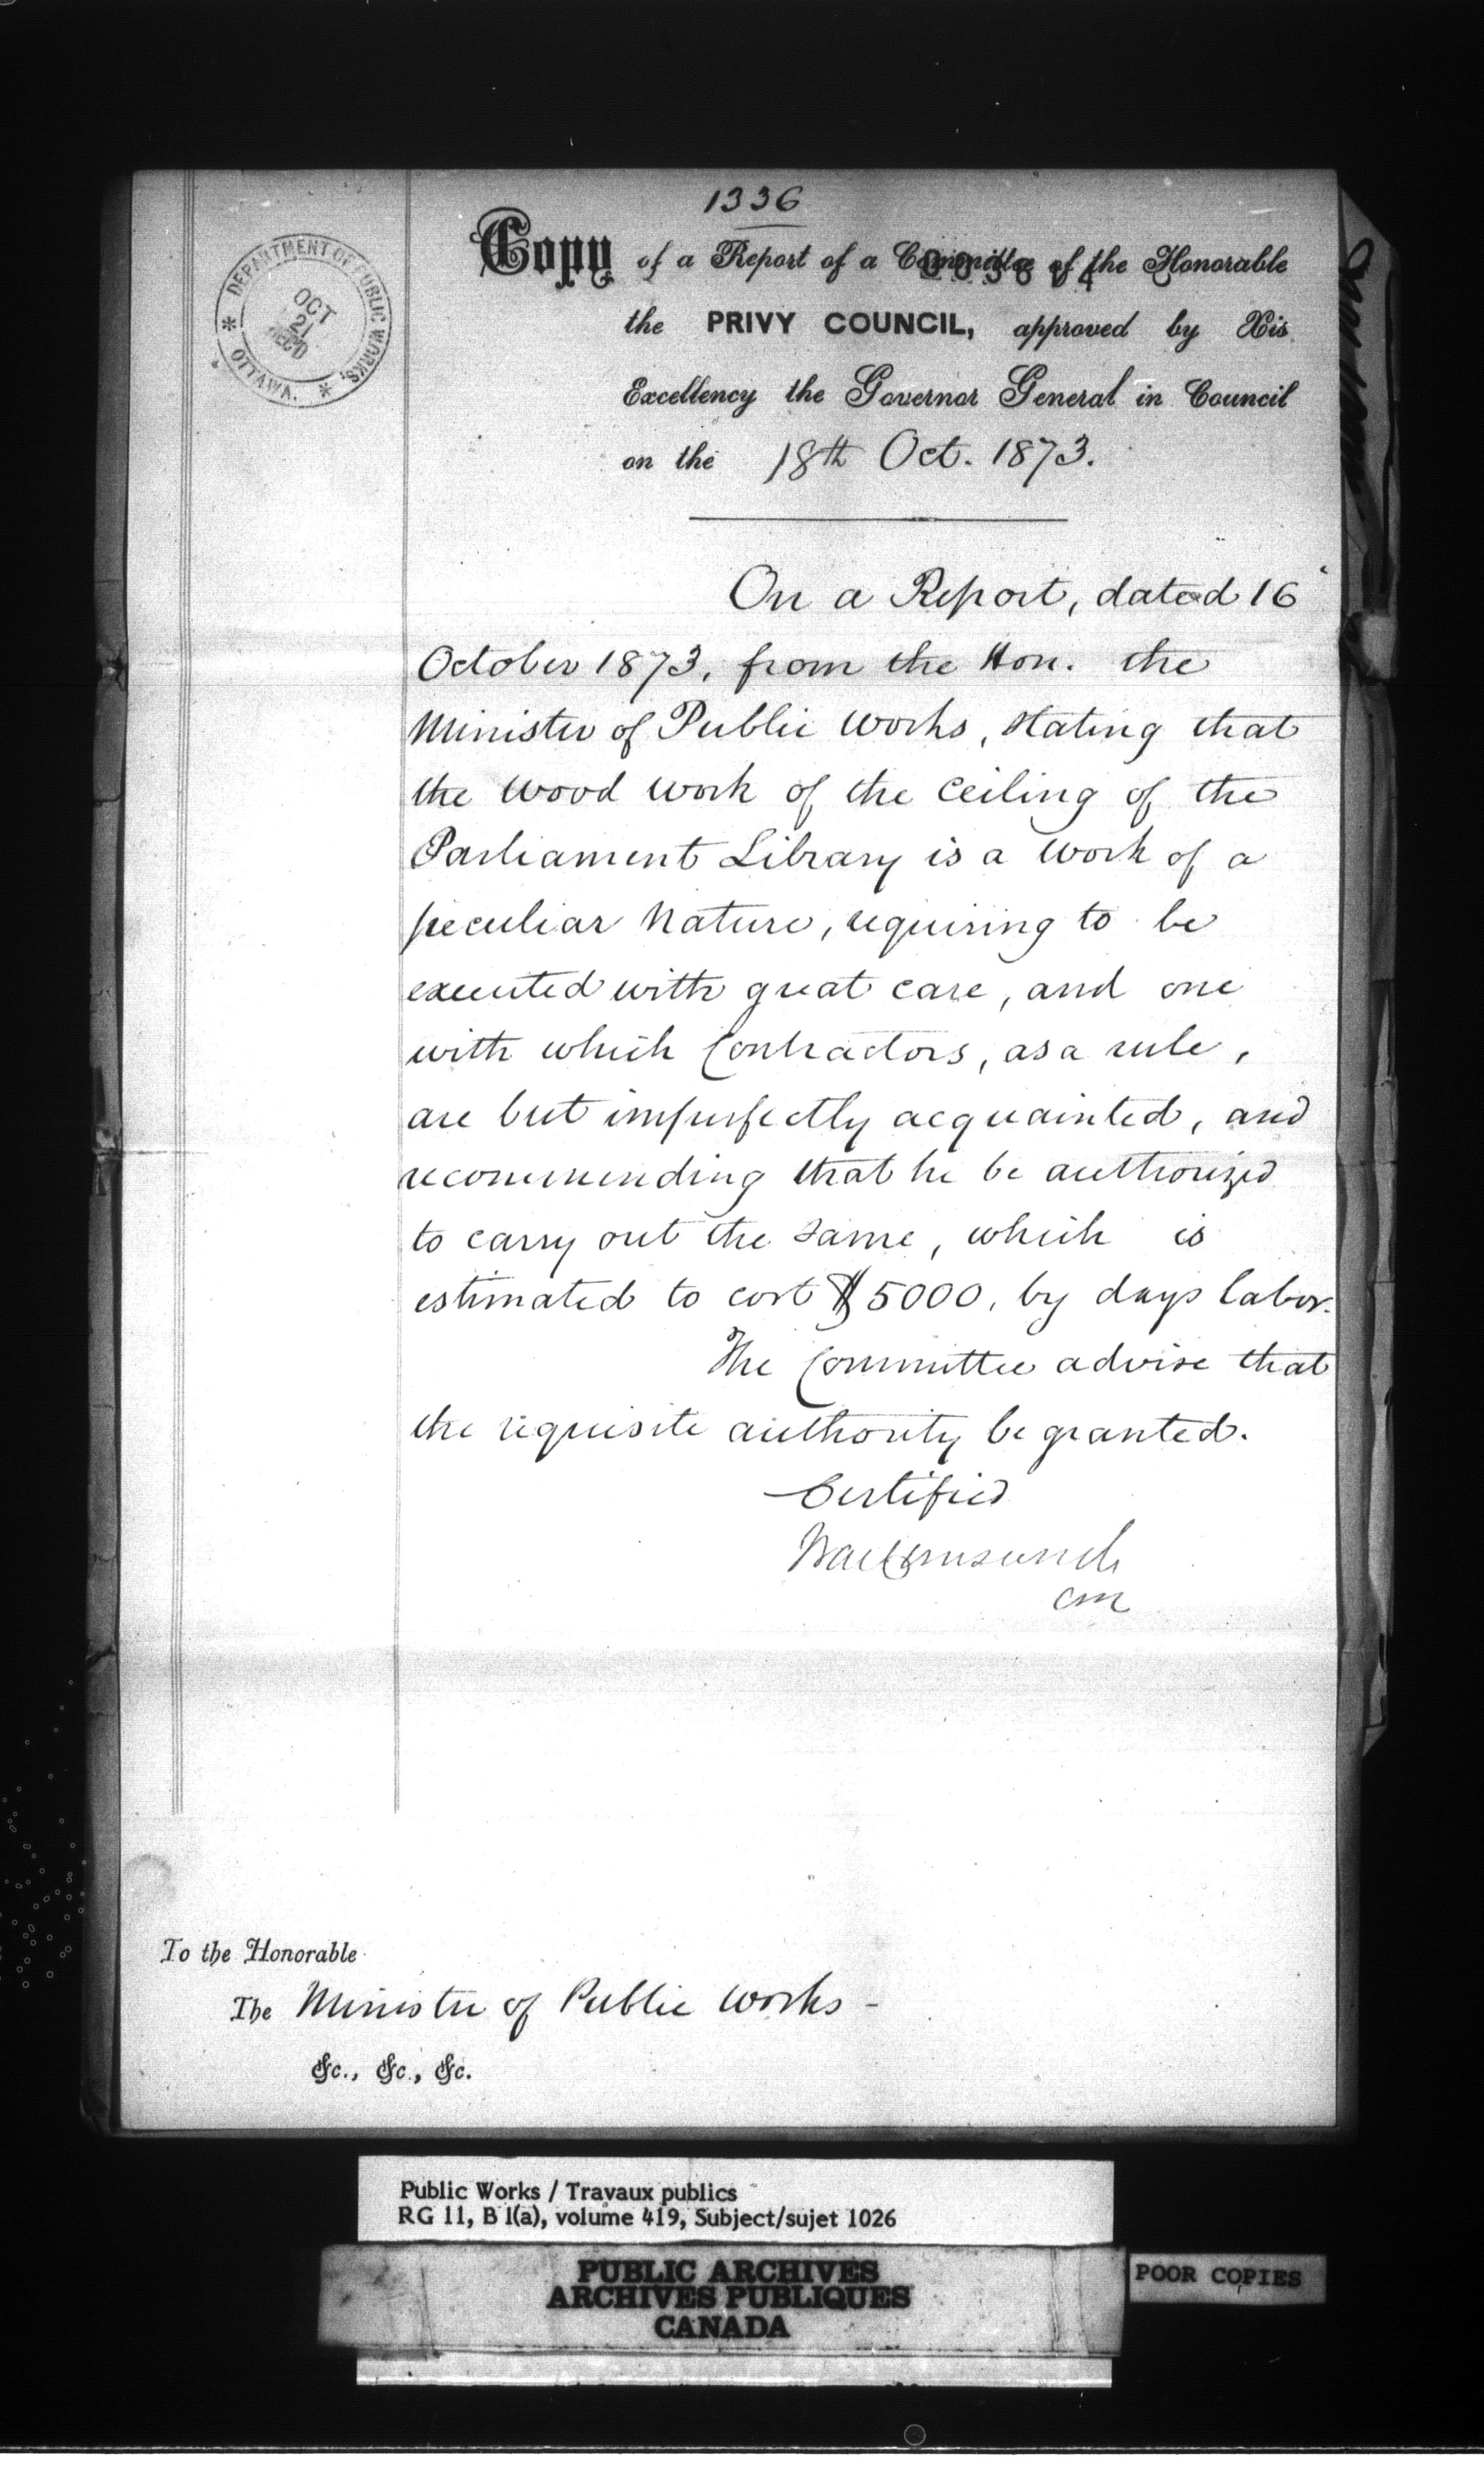 1336
Copy of a Report of a Committee of the Honorable
the PRIVY COUNCIL, approved by His
Excellency the Governor General in Council
on the 18th Oct. 1873.
DEPARTMENT OF PUBLIC WORKS,
OCT
21
REC'D
OTTAWA.
On a Report, dated 16
October 1873, from the Hon. the
Minister of Public Works, stating that
the wood work of the Ceiling of the
Parliament Library is a work of a
peculiar nature, requiring to be
executed with great care, and one
with which Contractors, as a rule,
are but imperfectly acquainted, and
recommending that he be authorized
to carry out the same, which is
estimated to cost $5000, by days labor.
The Committee advise that
the requisite authority be granted.
Certified
To the Honorable
The Minister of Public Works -
&c., &c., &c.
Public Works / Travaux publics
RG 11, B 1(a), volume 419, Subject/sujet 1026
PUBLIC ARCHIVES
ARCHIVES PUBLIQUES
CANADA
POOR COPIES